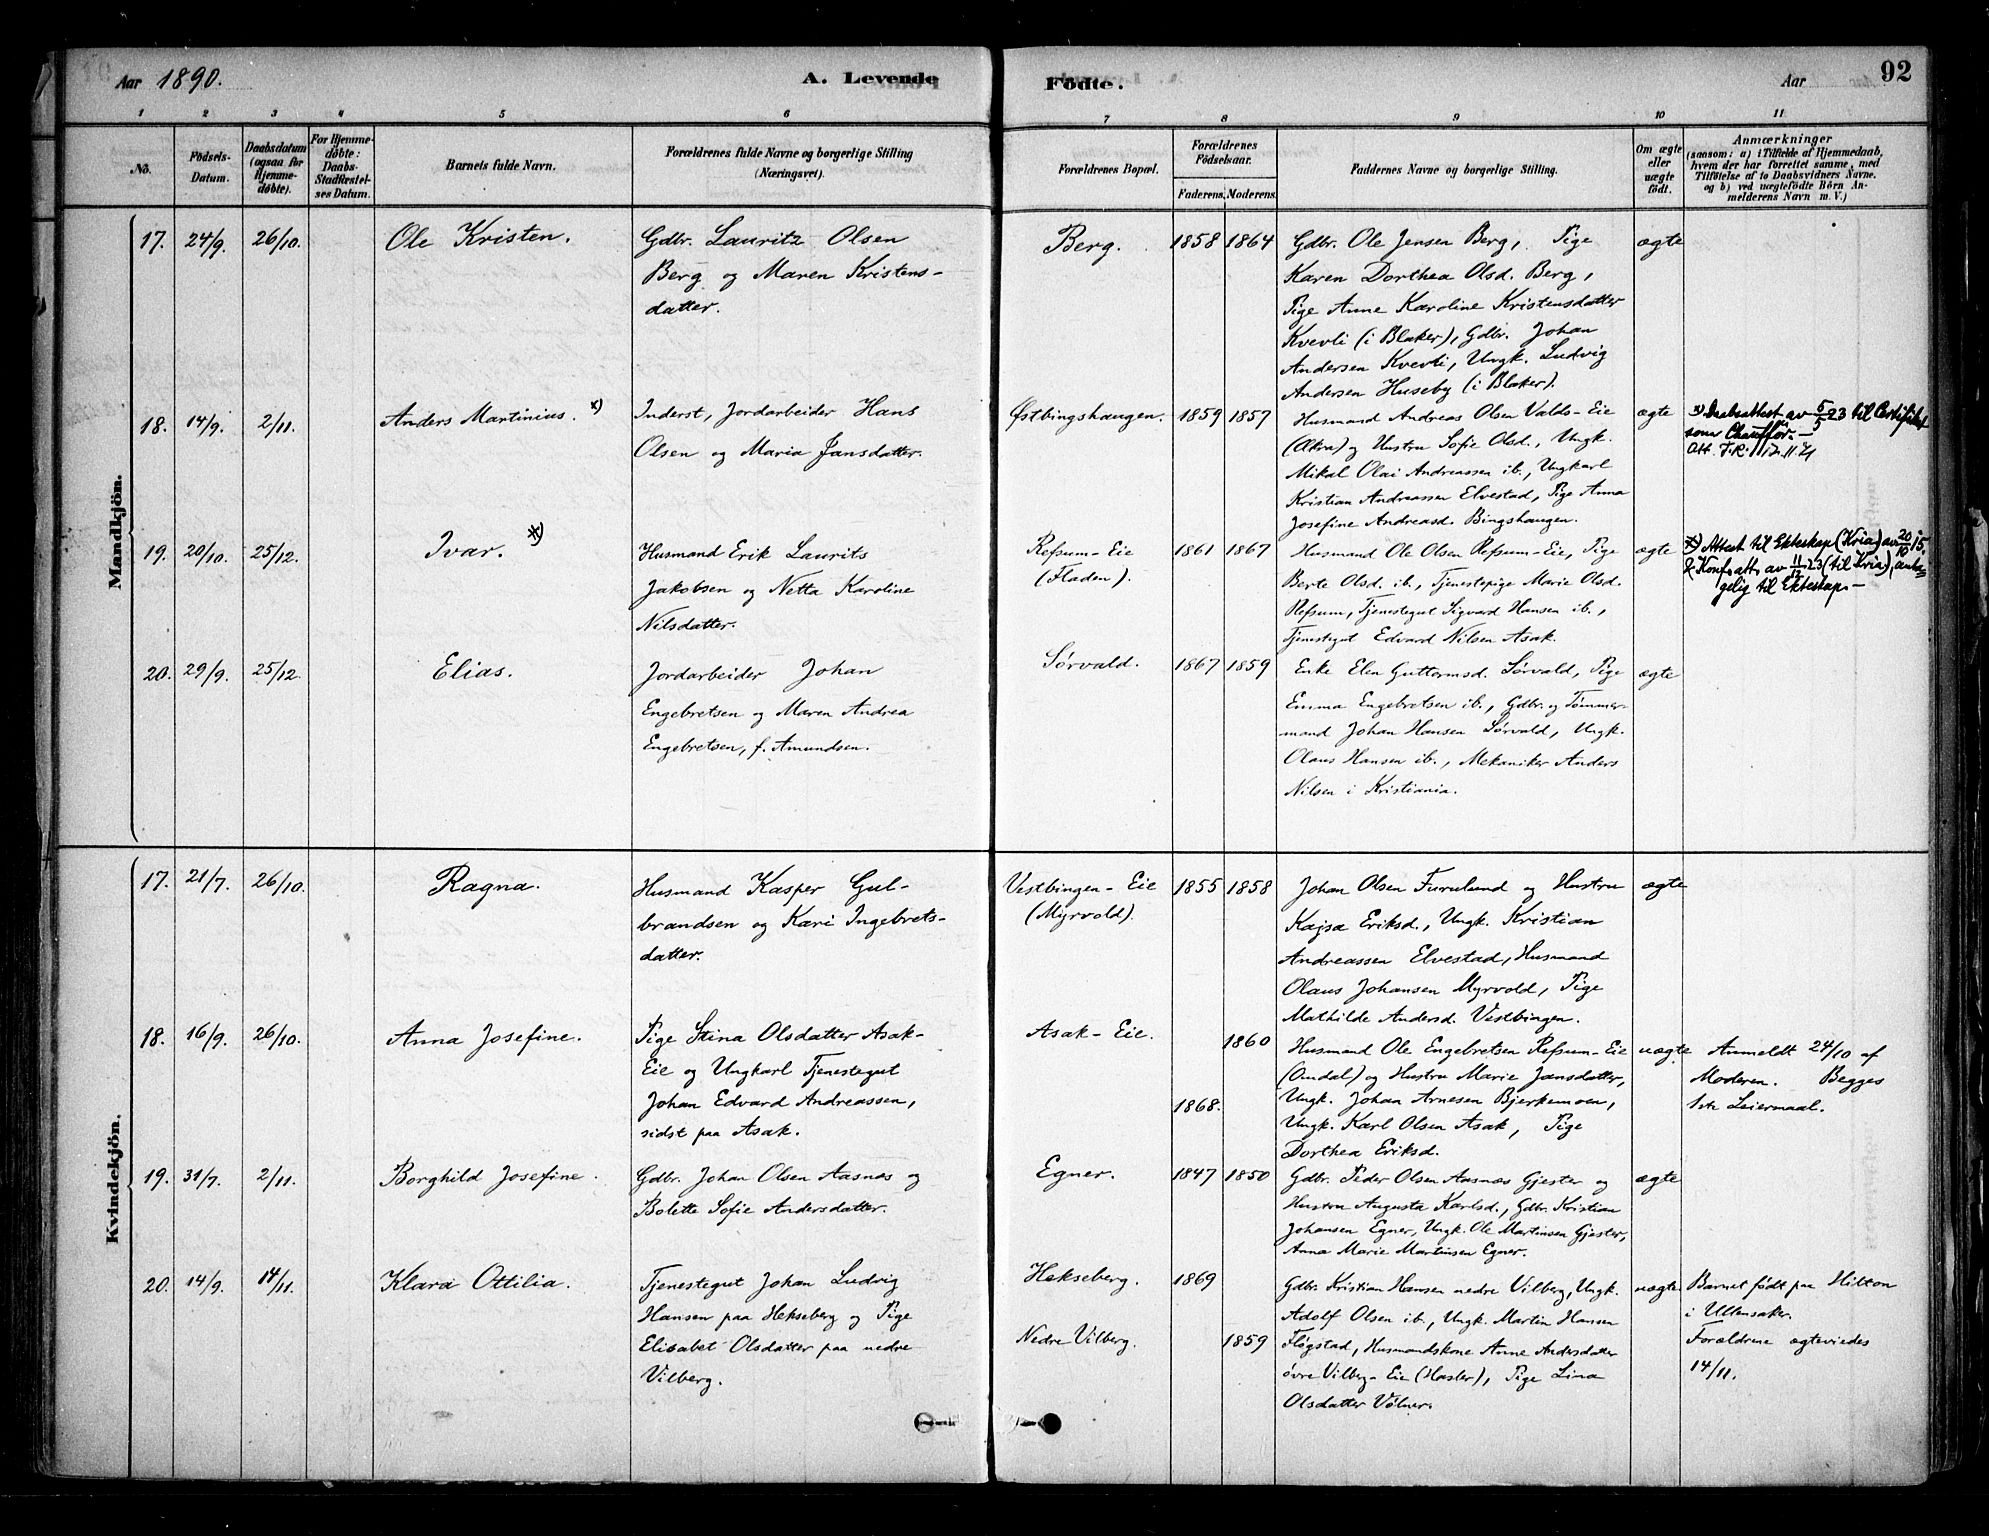 Aar 1890.
A. Levende
Födte.
Aar
92
1
2
3
4
5
6
7
8
9
10
11
No.
Fødsels-
Datum.
Daabsdatum
(ogsaa for
Hjemme-
døbte).
For Hjemme-
døbte:
Daabs-
Stadfæstel-
ses Datum.
Barnets fulde Navn.
Forældrenes fulde Navne og borgerlige Stilling
(Næringsvei).
Forældrenes Bopæl.
Forældrenes
Fødselsaar.
Faderens. Moderens.
Faddernes Navne og borgerlige Stilling.
Om ægte
eller
uægte
født.
Anmærkninger
(saasom: a) i Tilfælde af Hjemmedaab,
hvem der har forrettet samme, med
Tilføielse af to Daabsvidners Navne.
og b) ved uægtefødte Börn An-
melderens Navn m. V.)
Mandkjön.
17. 24/9. 26/10. Ole Kristen.
Gdbr. Lauritz Olsen
Berg og Maren Kristens-
datter.
Berg. 1858 1864
Gdbr. Ole Jensen Berg, Pige
Karen Dorthea Olsd. Berg,
Pige Anne Karoline Kristensdatter
Kvevli (i Blaker), Gdbr. Johan
Andersen Kvevli, Ungk. Ludvig
Andersen Huseby (i Blaker).
ægte
18. 14/9. 2/11. Anders Martinius. x)
Inderst, Jordarbeider Hans
Olsen og Maria Jansdatter.
Østbingshaugen. 1859 1857
Husmand Andreas Olsen Valds-Eie
(Akra) og Hustru Sofie Olsd., Ungk.
Mikal Olai Andreassen ib., Ungkarl
Kristian Andreassen Elvestad, Pige Anna
Josefine Andreasd. Bingshaugen.
ægte
x) Daabsattest av 5/5 23 til Certifikat
som Chauffør. –
Att. F.R. 12.11.71
19. 20/10. 25/12. Ivar. x)
Husmand Erik Laurits
Jakobsen og Netta Karoline
Nilsdatter.
Refsum-Eie
(Fladen).
1861 1867
Husmand Ole Olsen Refsum-Eie, Pige
Berte Olsd. ib., Tjenestepige Marie Olsd.
Refsum, Tjenestegut Sigvard Hansen ib.,
Tjenestegut Edvard Nilsen Asak.
ægte
x) Attest til Ekteskap (Kria) av 20/10 15.
& (Konf. att. av 11/12 23 (til Kria), anta-
gelig til Ekteskap. –
20. 29/9. 25/12. Elias.
Jordarbeider Johan
Engebretsen og Maren Andrea
Engebretsen, f. Amundsen.
Sørvald. 1867 1859
Enke Elen Guttormsd. Sørvald, Pige
Emma Engebretsen ib., Gdbr. og Tømmer-
mand Johan Hansen Sørvald, Ungk.
Olaus Hansen ib., Mekaniker Anders
Nilsen i Kristiania.
ægte
Kvindekjön.
17. 21/7. 26/10. Ragna.
Husmand Kasper Gul-
brandsen og Kari Ingebrets-
datter.
Vestbingen-Eie
(Myrvold).
1855 1858
Johan Olsen Furulund og Hustru
Kajsa Eriksd., Ungk. Kristian
Andreassen Elvestad, Husmand
Olaus Johansen Myrvold, Pige
Mathilde Andersd. Vestbingen.
ægte
18. 16/9. 26/10. Anna Josefine.
Pige Stina Olsdatter Asak-
Eie og Ungkarl Tjenestegut
Johan Edvard Andreassen,
sidst paa Asak.
Asak-Eie. 1860
1868.
Husmand Ole Engebretsen Refsum-Eie
(Omdal) og Hustru Marie Jansdatter,
Ungk. Johan Arnesen Bjerkemoen,
Ungk. Karl Olsen Asak, Pige
Dorthea Eriksd.
uægte
Anmeldt 24/10 af
Moderen. Begges
1ste Leiermaal.
19. 31/7. 2/11. Borghild Josefine.
Gdbr. Johan Olsen Aasnæs og
Bolette Sofie Andersdatter.
Egner. 1847 1850
Gdbr. Peder Olsen Aasnæs Gjester og
Hustru Augusta Karlsd., Gdbr. Kristian
Johansen Egner, Ungk. Ole Martinsen Gjester,
Anna Marie Martinsen Egner.
ægte
20. 14/9. 14/11. Klara Ottilia.
Tjenestegut Johan Ludvig
Hansen paa Hekseberg og Pige
Elisabet Olsdatter paa nedre
Vilberg.
Hekseberg. 1869
Nedre Vilberg. 1859
Gdbr. Kristian Hansen nedre Vilberg, Ungk.
Adolf Olsen ib., Ungk. Martin Hansen
Fløgstad, Husmandskone Anne Andersdatter
øvre Vilberg-Eie (Hasler), Pige Lina
Olsdatter Vølner.
uægte
Barnet født paa Hilton
i Ullensaker.
Forældrene ægteviedes
14/11.